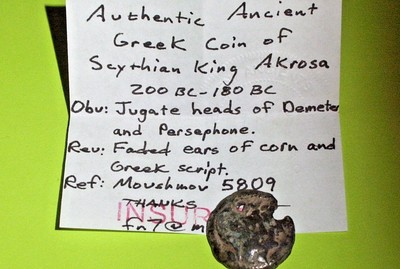 Authentic Ancient
Greek Coin of
Scythian King Akrosa
200 BC-180 BC
Obv: Jugate heads of Demeter
and Persephone.
Rev: Faded ears of corn and
Greek script.
Ref: Moushmov 5809
THANKS
INSUR
fn7@m